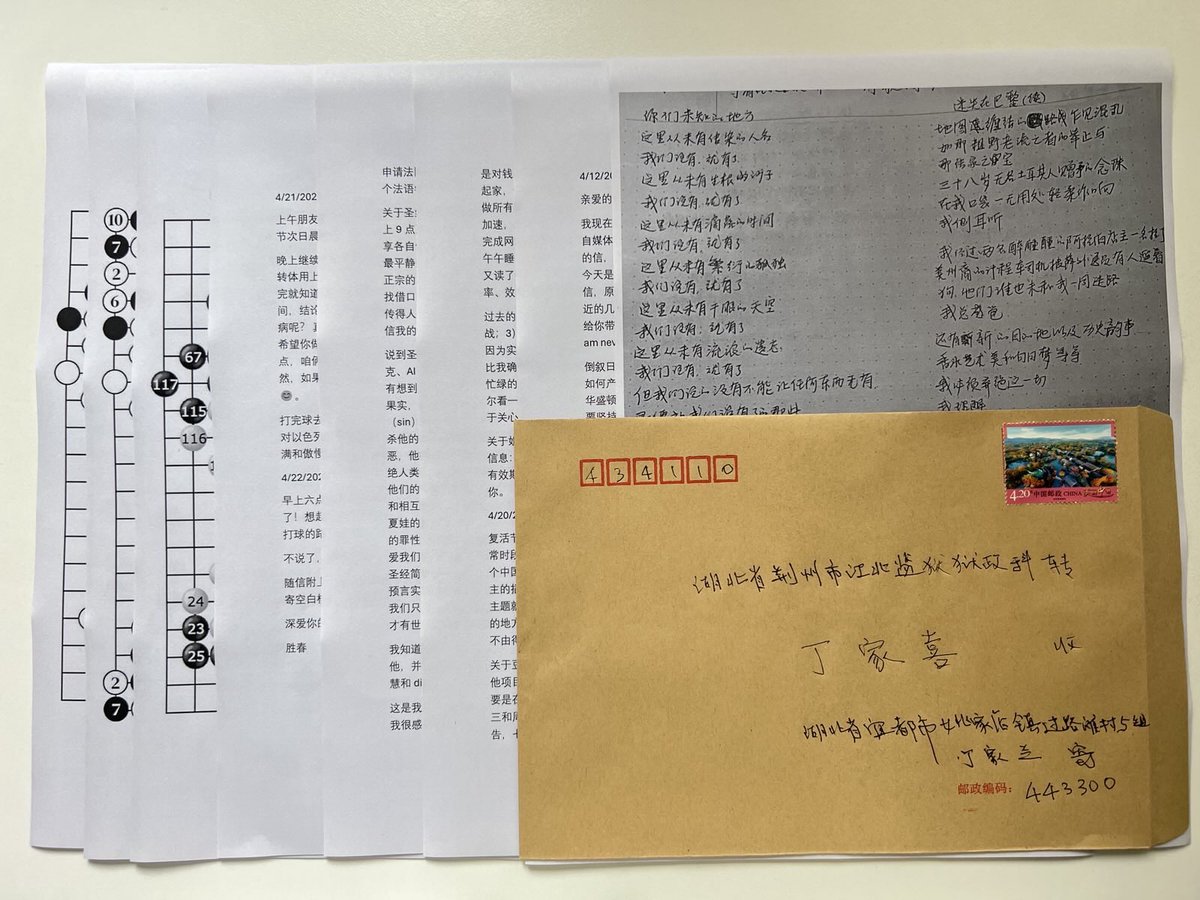 10
7
2
6
2
7
67
117
115
116
24
23
25
4/21/202
上午朋友
节次日晨
晚上继续
转体用上
完就知道
间，结论
病呢？
希望你做
点，咱
然，如果
😊。
打完球去
对以色列
满和傲慢
4/22/202
早上六点
了！想起
打球的路
不说了，
随信附上
寄空白棋
深爱你的
胜春
申请法
个法语
关于圣
上 9 点
享各自
最平静
正宗的
找借口
传得人
信我的
说到圣
克、AI
有想到
果实，
（sin）
杀他的
恶，他
绝人类
他们的
和相互
夏娃的
的罪性
爱我们
圣经简
预言实
我们只
才有世
我知道
他，并
慧和 di
这是我
我很感
是对钱
起家，
做所有
加速，
完成网
午午睡
又读了
率、效
过去的
战；3）
因为实
比我确
忙绿的
尔看一
于关心
关于
信息：
有效期
你。
4/20/2
复活节
常时段
个中国
主的描
主题就
的地方
不由得
关于豆
他项目
要是在
三和周
告，七
4/12/20
亲爱的
我现在
自媒体
的信，
今天是
信，原
近的几
给你带
am nev
倒叙日
如何产
华盛顿
要坚持
你们未知的地方
这里从未有传染的人名
我们没有，就有了
这里从未有生根的沙子
我们没有，就有了
这里从未有滴落的时间
我们没有，就有了
这里从未有繁衍的孤独
我们没有，就有了
这里从未有干服的天空
我们没有，就有了
这里从未有流浪的遗忘
我们没有，就有了
但我们说的没有不能让任何东西无有，
迷失在巴黎（续）
地图里缠结的路线乍见混乱
三十八岁无名土耳其人赠予的念珠
在我口袋一无用处轻柔作响
我侧耳听
狗，他们谁也未和我一同迷路
我总犯
香水艺术美和自由等等
我中规弃绝这一切
434110
4.20
中国邮政 CHINA
湖北省荆州市江北监狱狱政科 转
丁家喜 收
湖北省宜都市姚家店镇过路滩村5组
丁家立 寄
邮政编码：443300